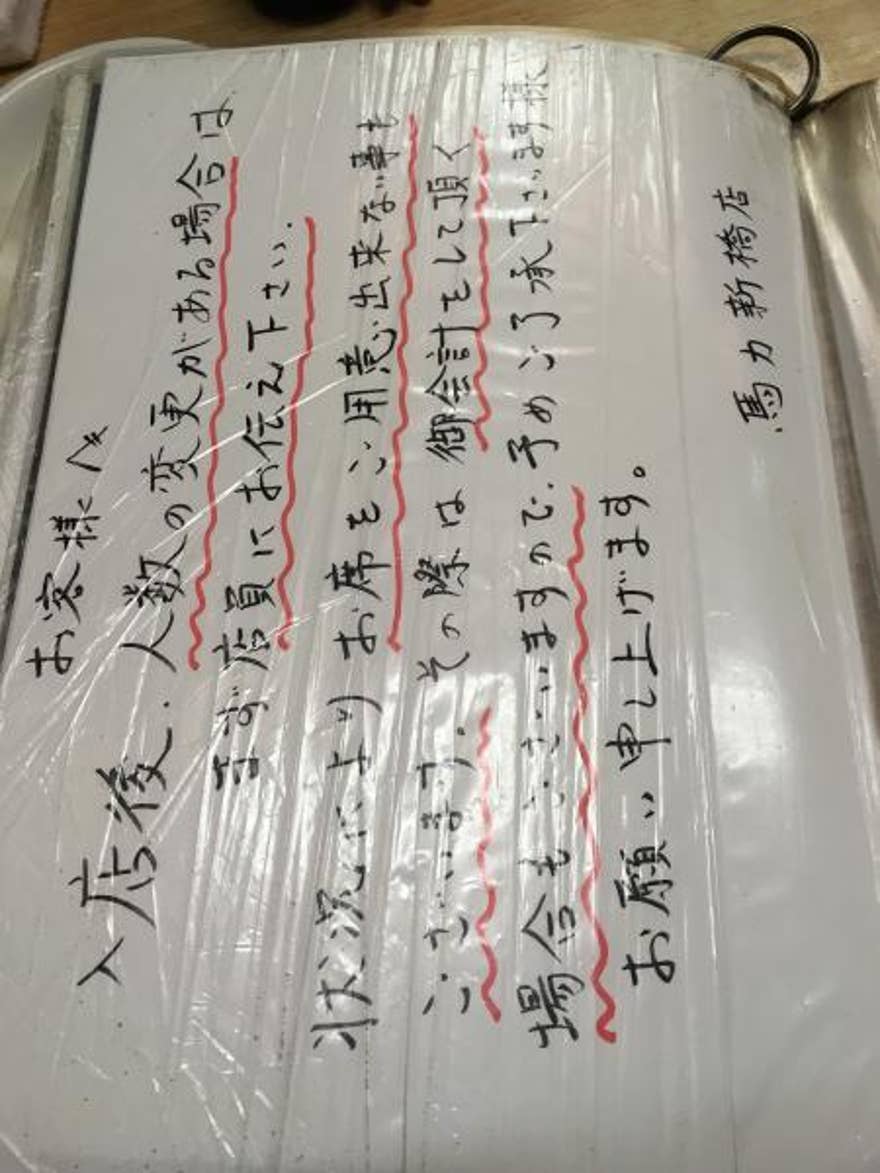 お客様へ
入店後、人数の変更がある場合は
まず店員にお伝え下さい、
状況によりお席をご用意出来ない事も
ございます。その際は御会計をして頂く
場合もございますので、予めご了承下さいます様
お願い申し上げます。
馬力新橋店